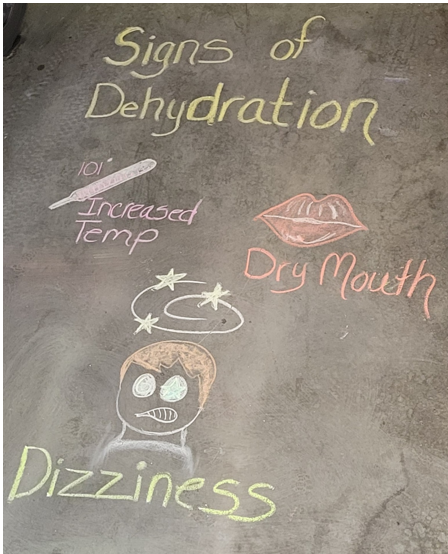 Signs of
Dehydration
101°
Increased
Temp
Dry Mouth
Dizziness